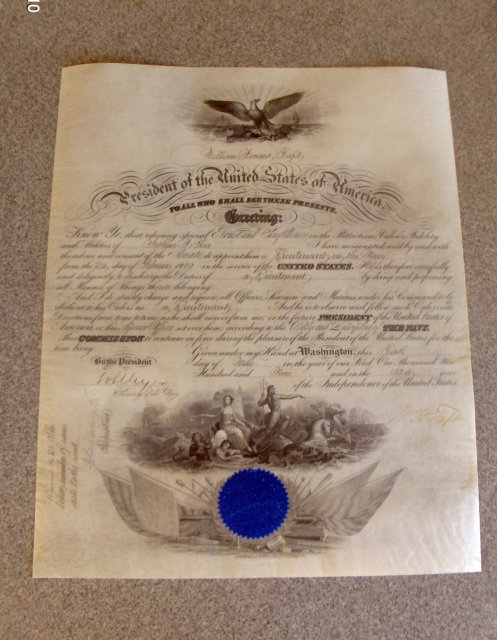 William Howard Taft,
President of the United States of America.
TO ALL WHO SHALL SEE THESE PRESENTS,
Greeting:
Know Ye, that reposing special Trust and Confidence in the Patriotism, Valor, Fidelity
and Abilities of Arthur I have nominated and by and with
the advice and consent of the Senate do appoint him a Lieutenant in the Navy
from the day of 1909 in the service of the UNITED STATES. He is therefore carefully
and diligently to discharge the Duties of a Lieutenant by doing and performing
all Manner of Things thereto belonging.
And I do strictly charge and require all Officers, Seamen and Marines under his Command to be
obedient to his Orders as a Lieutenant And he is to observe and follow such Orders and
Directions from time to time as he shall receive from me, or the future PRESIDENT of the United States of
America, or his Superior Officer set over him, according to the Rules and Discipline of THE NAVY.
This COMMISSION to continue in force during the pleasure of the President of the United States for the
time being.
Given under my Hand at Washington, this
By the President day of in the year of our Lord One Thousand Nine
Hundred and Nine and in the year
Secretary of the Navy. of the Independence of the United States.